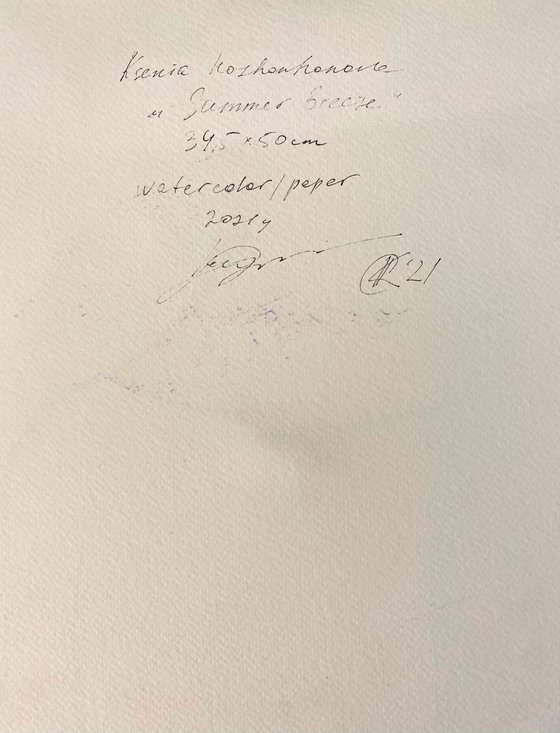 Ksenia Kozhenkanova
"Summer breeze"
34,5 × 50cm
watercolor/paper
2021y
'21